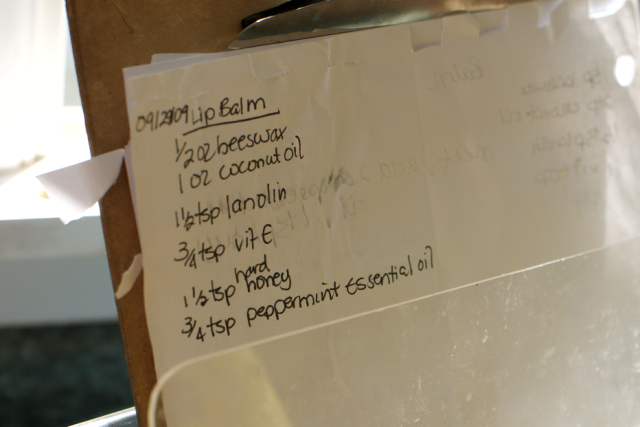 09/29/09 Lip Balm
1/2 oz beeswax
1 oz coconut oil
1 1/2 tsp lanolin
3/4 tsp vit E
1 1/2 tsp hard honey
3/4 tsp peppermint essential oil